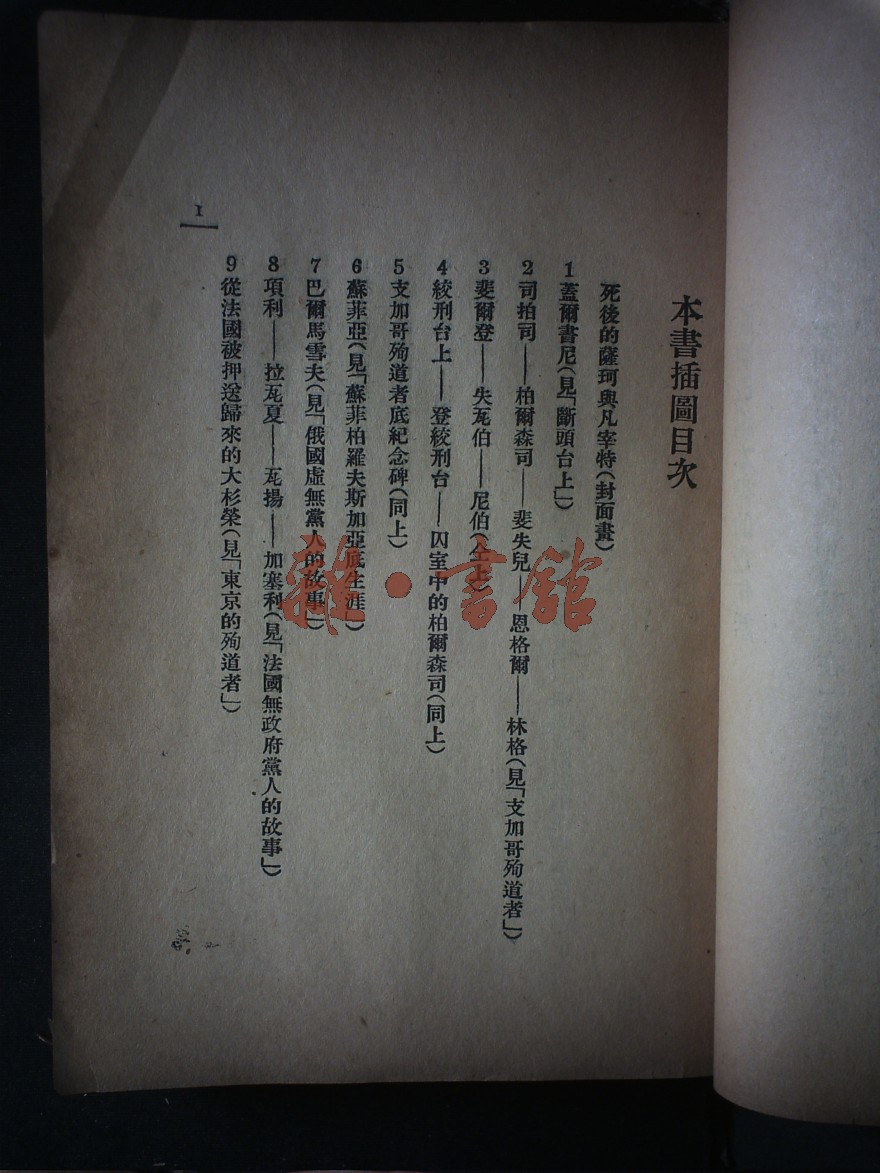 本書插圖目次
死後的薩珂與凡宰特(封面畫)
1 蓋爾書尼(見「斷頭台上」)
2 司拍司——柏爾森司——斐失兒——恩格爾——林格(見「支加哥殉道者」)
3 斐爾登——失瓦伯——尼伯(仝上)
4 絞刑台上——登絞刑台——囚室中的柏爾森司(同上)
5 支加哥殉道者底紀念碑(同上)
6 蘇菲亞(見「蘇菲柏羅夫斯加亞底生涯」)
7 巴爾馬雪夫(見「俄國虛無黨人的故事」)
8 項利——拉瓦夏——瓦揚——加塞利(見「法國無政府黨人的故事」)
9 從法國被押送歸來的大杉榮(見「東京的殉道者」)
1
雜·書館